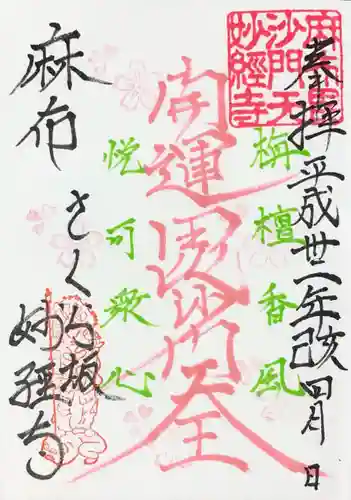 奉拝 平成丗一年己亥四月 日
麻布毘
沙門天
妙經寺
栴檀香風
開運毘沙門天
悦可衆心
麻布 さくら坂
妙經寺